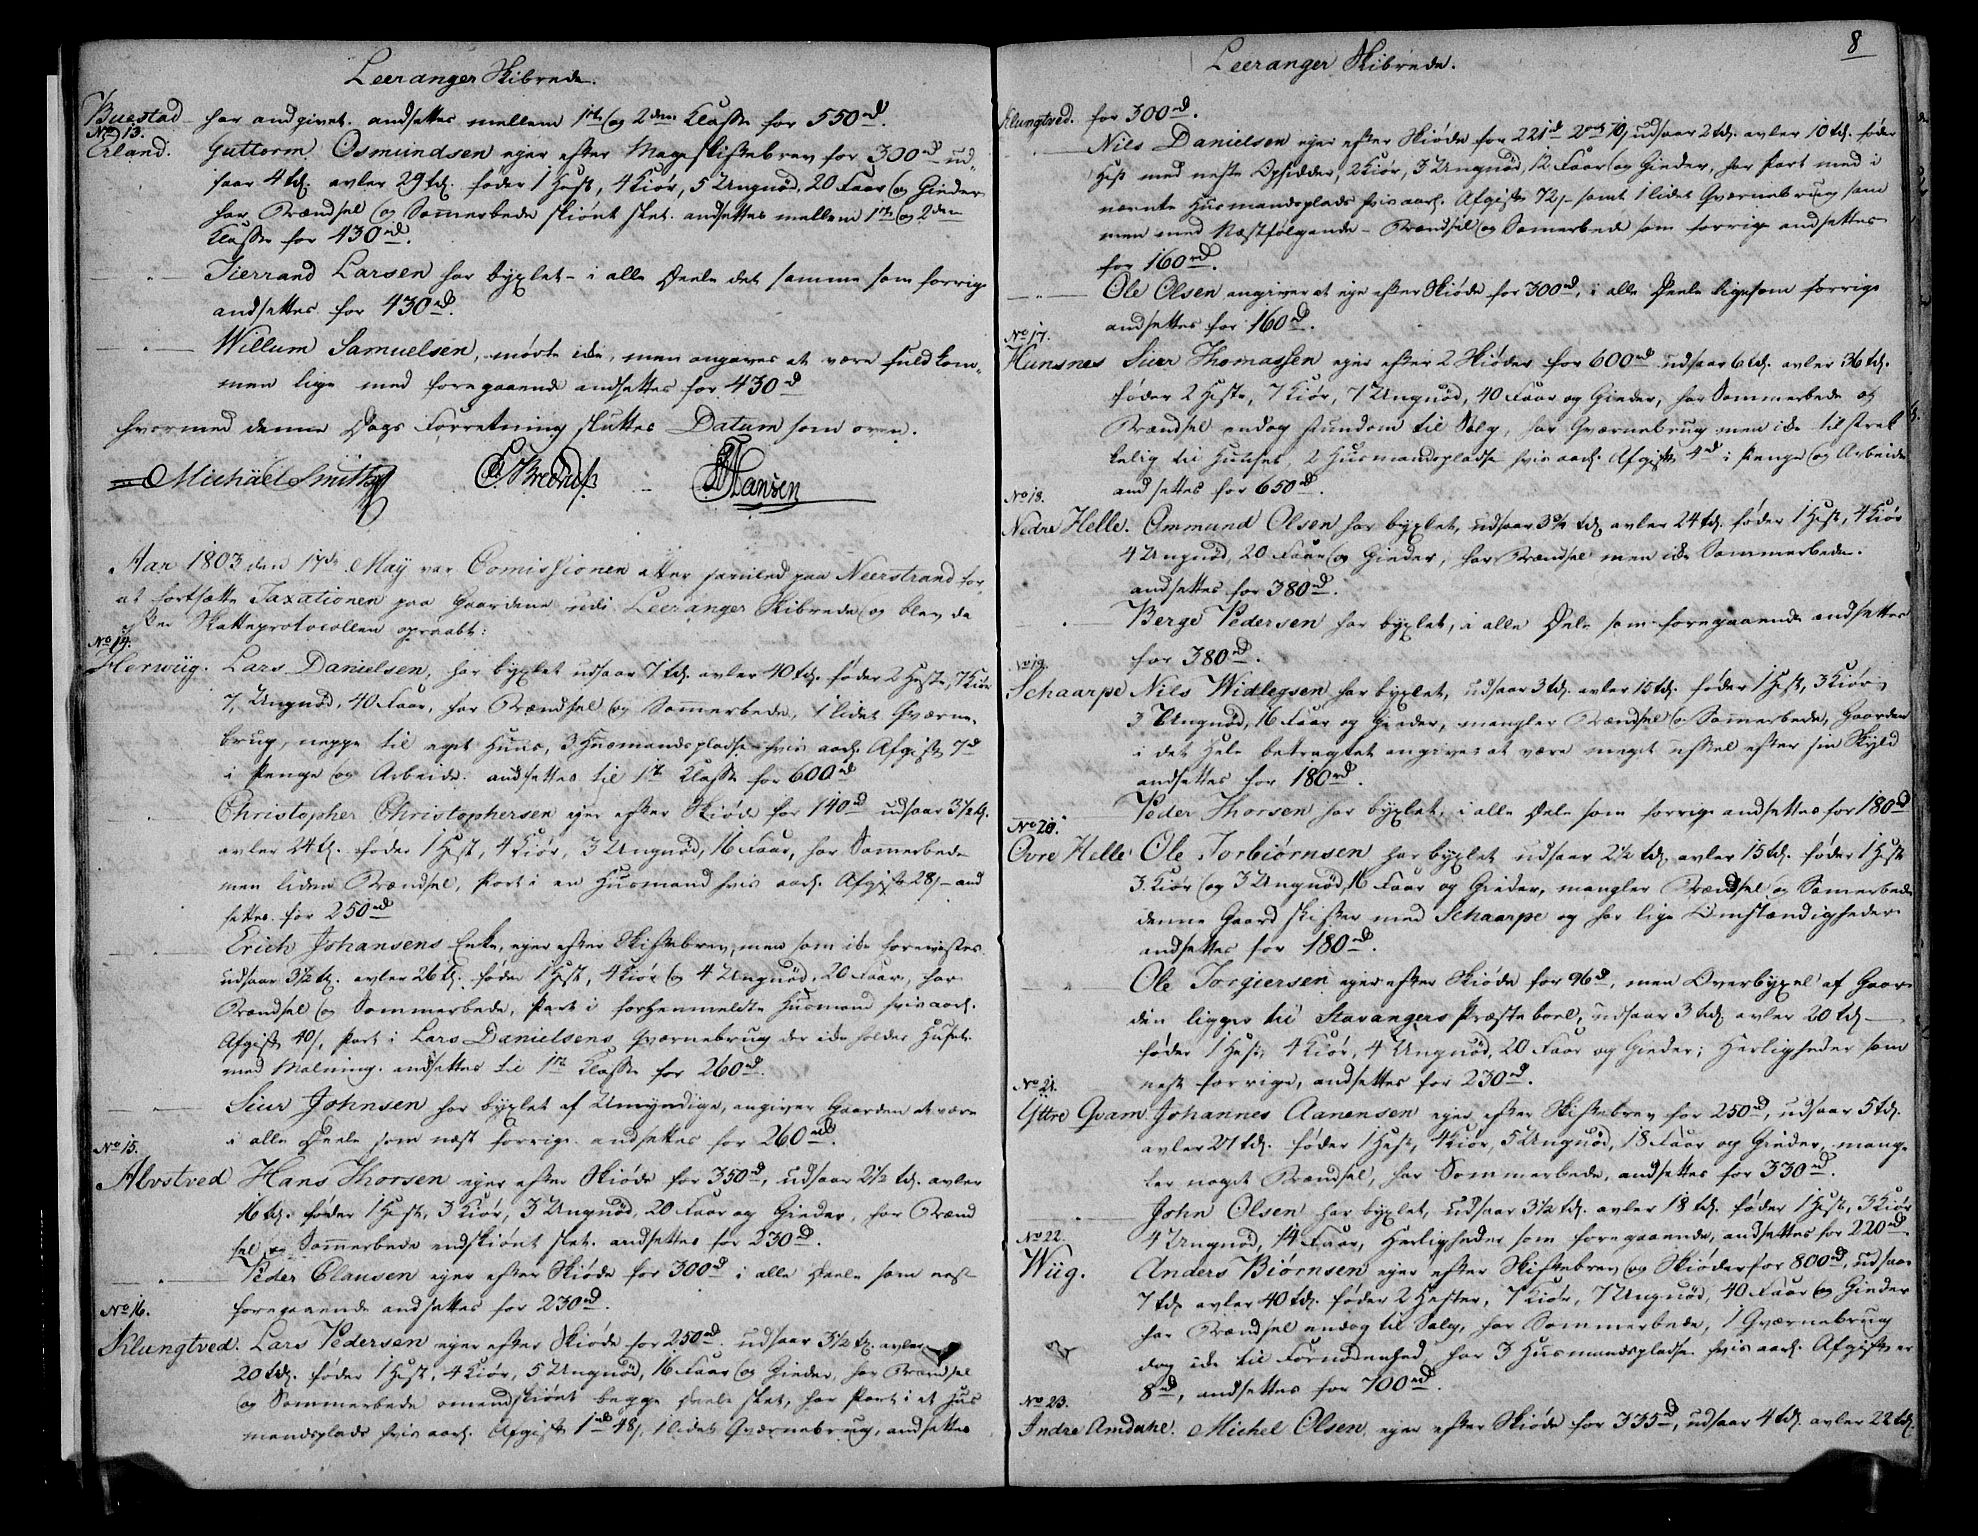 Leeranger Skibrede.
Buestad har andgivet. andsættes mellem 1te og 2den Klasse for 550rd.
No 13.
Erland. Guttorm Osmundsen ejer efter Mageskiftebrev for 300rd ud-
saar 4 td. avler 29 td. føder 1 Hest, 4 Kiør, 5 Ungnød, 20 Faar og Gieder
har Brændsel og Sommerbede skiønt slet. andsættes mellem 1te og 2den
Klasse for 430rd.
Tierrand Larsen har bygslet - i alle Deele det samme som forrige
andsættes for 430rd.
Willum Samuelsen, mødte ikke, men angaves at være fuldkom-
men lige med foregaaende andsættes for 430rd
hvormed denne Dags Forretning sluttes Datum som oven.
Michäel Smith Hansen
Aar 1803 den 17de May var Comissionen atter samled paa Neerstrand for
at fortsætte Taxationen paa Gaardene udi Leeranger Skibrede og blev da
efter Skatteprotocollen opraabt:
No 14.
Herwiig. Lars Danielsen, har bygslet udsaar 7 td. avler 40 td. føder 2 Heste, 7 Kiør
7 Ungnød, 40 Faar, har Brændsel og Sommerbede, 1 lidet Qværne-
brug, neppe til eget Huus, 3 Husmandspladse hvis aarl. Afgift 7rd
i Penge og Arbeide. andsættes til 1te Klasse for 600rd
Christopher Christophersen ejer efter Skiøde for 140rd udsaar 3½ td.
avler 24 td. føder 1 Hest, 4 Kiør, 3 Ungnød, 16 Faar, har Somerbede
men liden Brændsel, Part i en Husmand hvis aarl. Afgift 28s - and
sættes for 250rd
Erich Johansens Enke, ejer efter Skiftebrev, men som ikke forevistes
udsaar 3½ td. avler 26 td. føder 1 Hest, 4 Kiør og 4 Ungnød, 20 Faar, har
Brændsel og Sommerbede, Part i forhenmeldte Husmand hvis aarl.
Afgift 40s, Part i Lars Danielsens Qværnebrug der ikke holder Huset
med Malning. andsættes til 1te Klasse for 260rd.
Siur Johnsen har bygslet af Umyndige, angiver Gaarden at være
i alle Deele som næst forrige. andsættes for 260rd.
No 15.
Alvstved Hans Thorsen ejer efter Skiøde for 350rd, udsaar 2½ td. avler
16 td. føder 1 Hest, 3 Kiør, 3 Ungnød, 20 Faar og Gieder, har Brænd
sel og Sommerbede endskiønt slet. andsættes for 230rd.
Peder Clausen ejer efter Skiøde for 300rd i alle Deele som næst
foregaaende andsættes for 230rd.
No 16.
Klungtved. Lars Pedersen ejer efter Skiøde for 250rd. udsaar 3½ td. avler
20 td. føder 1 Hest, 4 Kiør, 5 Ungnød, 16 Faar og Gieder, har Brændsel
og Sommerbede omendskiønt begge Deele slet, har Part i et Hus
mandsplads hvis aarl. Afgift 1rd 48s, 1 lidet Qværnebrug, andsættes
8
Leeranger Skibrede.
Klungtved. for 300rd.
Nils Danielsen ejer efter Skiøde for 221rd 2 10s udsaar 2 td. avler 10 td. føder
Hest med neste Opsidder, 2 Kiør, 3 Ungnød, 12 Faar og Gieder, har Part med i
nævnte Husmandsplads hvis aarl. Afgift 72s - samt 1 lidet Qværnebrug sam
men med Næstfølgende - Brændsel og Somerbede som forrige andsættes
for 160rd.
Ole Olsen angiver at eje efter Skiøde for 300rd, i alle Deele ligesom forrige
andsættes for 160rd.
No 17.
Hunsnes Siur Thomassen ejer efter 2 Skiøder for 600rd udsaar 6 td. avler 36 td.
føder 2 Heste, 7 Kiør, 7 Ungnød, 40 Faar og Gieder, har Sommerbede og
Brændsel endog stundom til Salg, har Qværnebrug men ikke tilstræk
kelig til Huuset, 2 Husmandspladse hvis aarl. Afgift 4rd i Penge og Arbeide
andsættes for 650rd.
No 18.
Nedre Helle. Ommund Olsen har bygslet, udsaar 3¾ td. avler 24 td. føder 1 Hest, 4 Kiør
4 Ungnød, 20 Faar og Gieder, har Brændsel men ikke Sommerbede.
andsættes for 380rd.
Berge Pedersen har bygslet, i alle Deele som foregaaende andsættes
for 380rd.
No 19.
Schaarpe Nils Widlegsen har bygslet, udsaar 3 td. avler 15 td. føder 1 Hest, 3 Kiør
3 Ungnød, 16 Faar og Gieder, mangler Brændsel og Sommerbede, Gaarden
i det Hele betragtet angives at være meget ussel efter sin Skyld
andsættes for 180rd.
Peder Thorsen har bygslet, i alle Deele som forrige andsættes for 180rd
No 20.
Øvre Helle Ole Torbiørnsen har bygslet udsaar 2½ td. avler 15 td. føder 1 Hest
3 Kiør og 3 Ungnød, 16 Faar og Gieder, mangler Brændsel og Somerbede
denne Gaard skifter med Schaarpe og har lige Omstændigheder
andsættes for 180rd.
Ole Torgiersen ejer efter Skiøde for 96rd, men Overbygsel af Gaar-
den ligger til Stavangers Præsteboel, udsaar 3 td. avler 20 td.
føder 1 Hest, 4 Kiør, 4 Ungnød, 20 Faar og Gieder; Herligheder som
nest forrige, andsættes for 230rd.
No 21.
Yttre Qvam. Johannes Aanensen ejer efter Skiftebrev for 250rd, udsaar 5 td.
avler 27 td. føder 1 Hest, 4 Kiør, 5 Ungnød, 18 Faar og Gieder, mang-
ler noget Brændsel, har Sommerbede, andsættes for 330rd.
John Olsen har bygslet, udsaar 3½ td. avler 18 td. føder 1 Hest, 3 Kiør
4 Ungnød, 14 Faar, Herligheder som foregaaende, andsættes for 220rd.
No 22.
Wiig. Anders Biørnsen ejer efter Skiftebrev og Skiøder for 800rd, udsaar
7 td. avler 40 td. føder 2 Hester, 7 Kiør, 7 Ungnød, 40 Faar og Gieder
har Brændsel endog til Salg, har Sommerbede, 1 Qværnebrug
dog ikke til Fornødenhed, har 3 Husmandspladse hvis aarl. Afgift er
8rd, andsættes for 700rd.
No 23.
Indre Amdahl. Michel Olsen ejer efter Skiøde for 335rd, udsaar 4 td. avler 22 td.